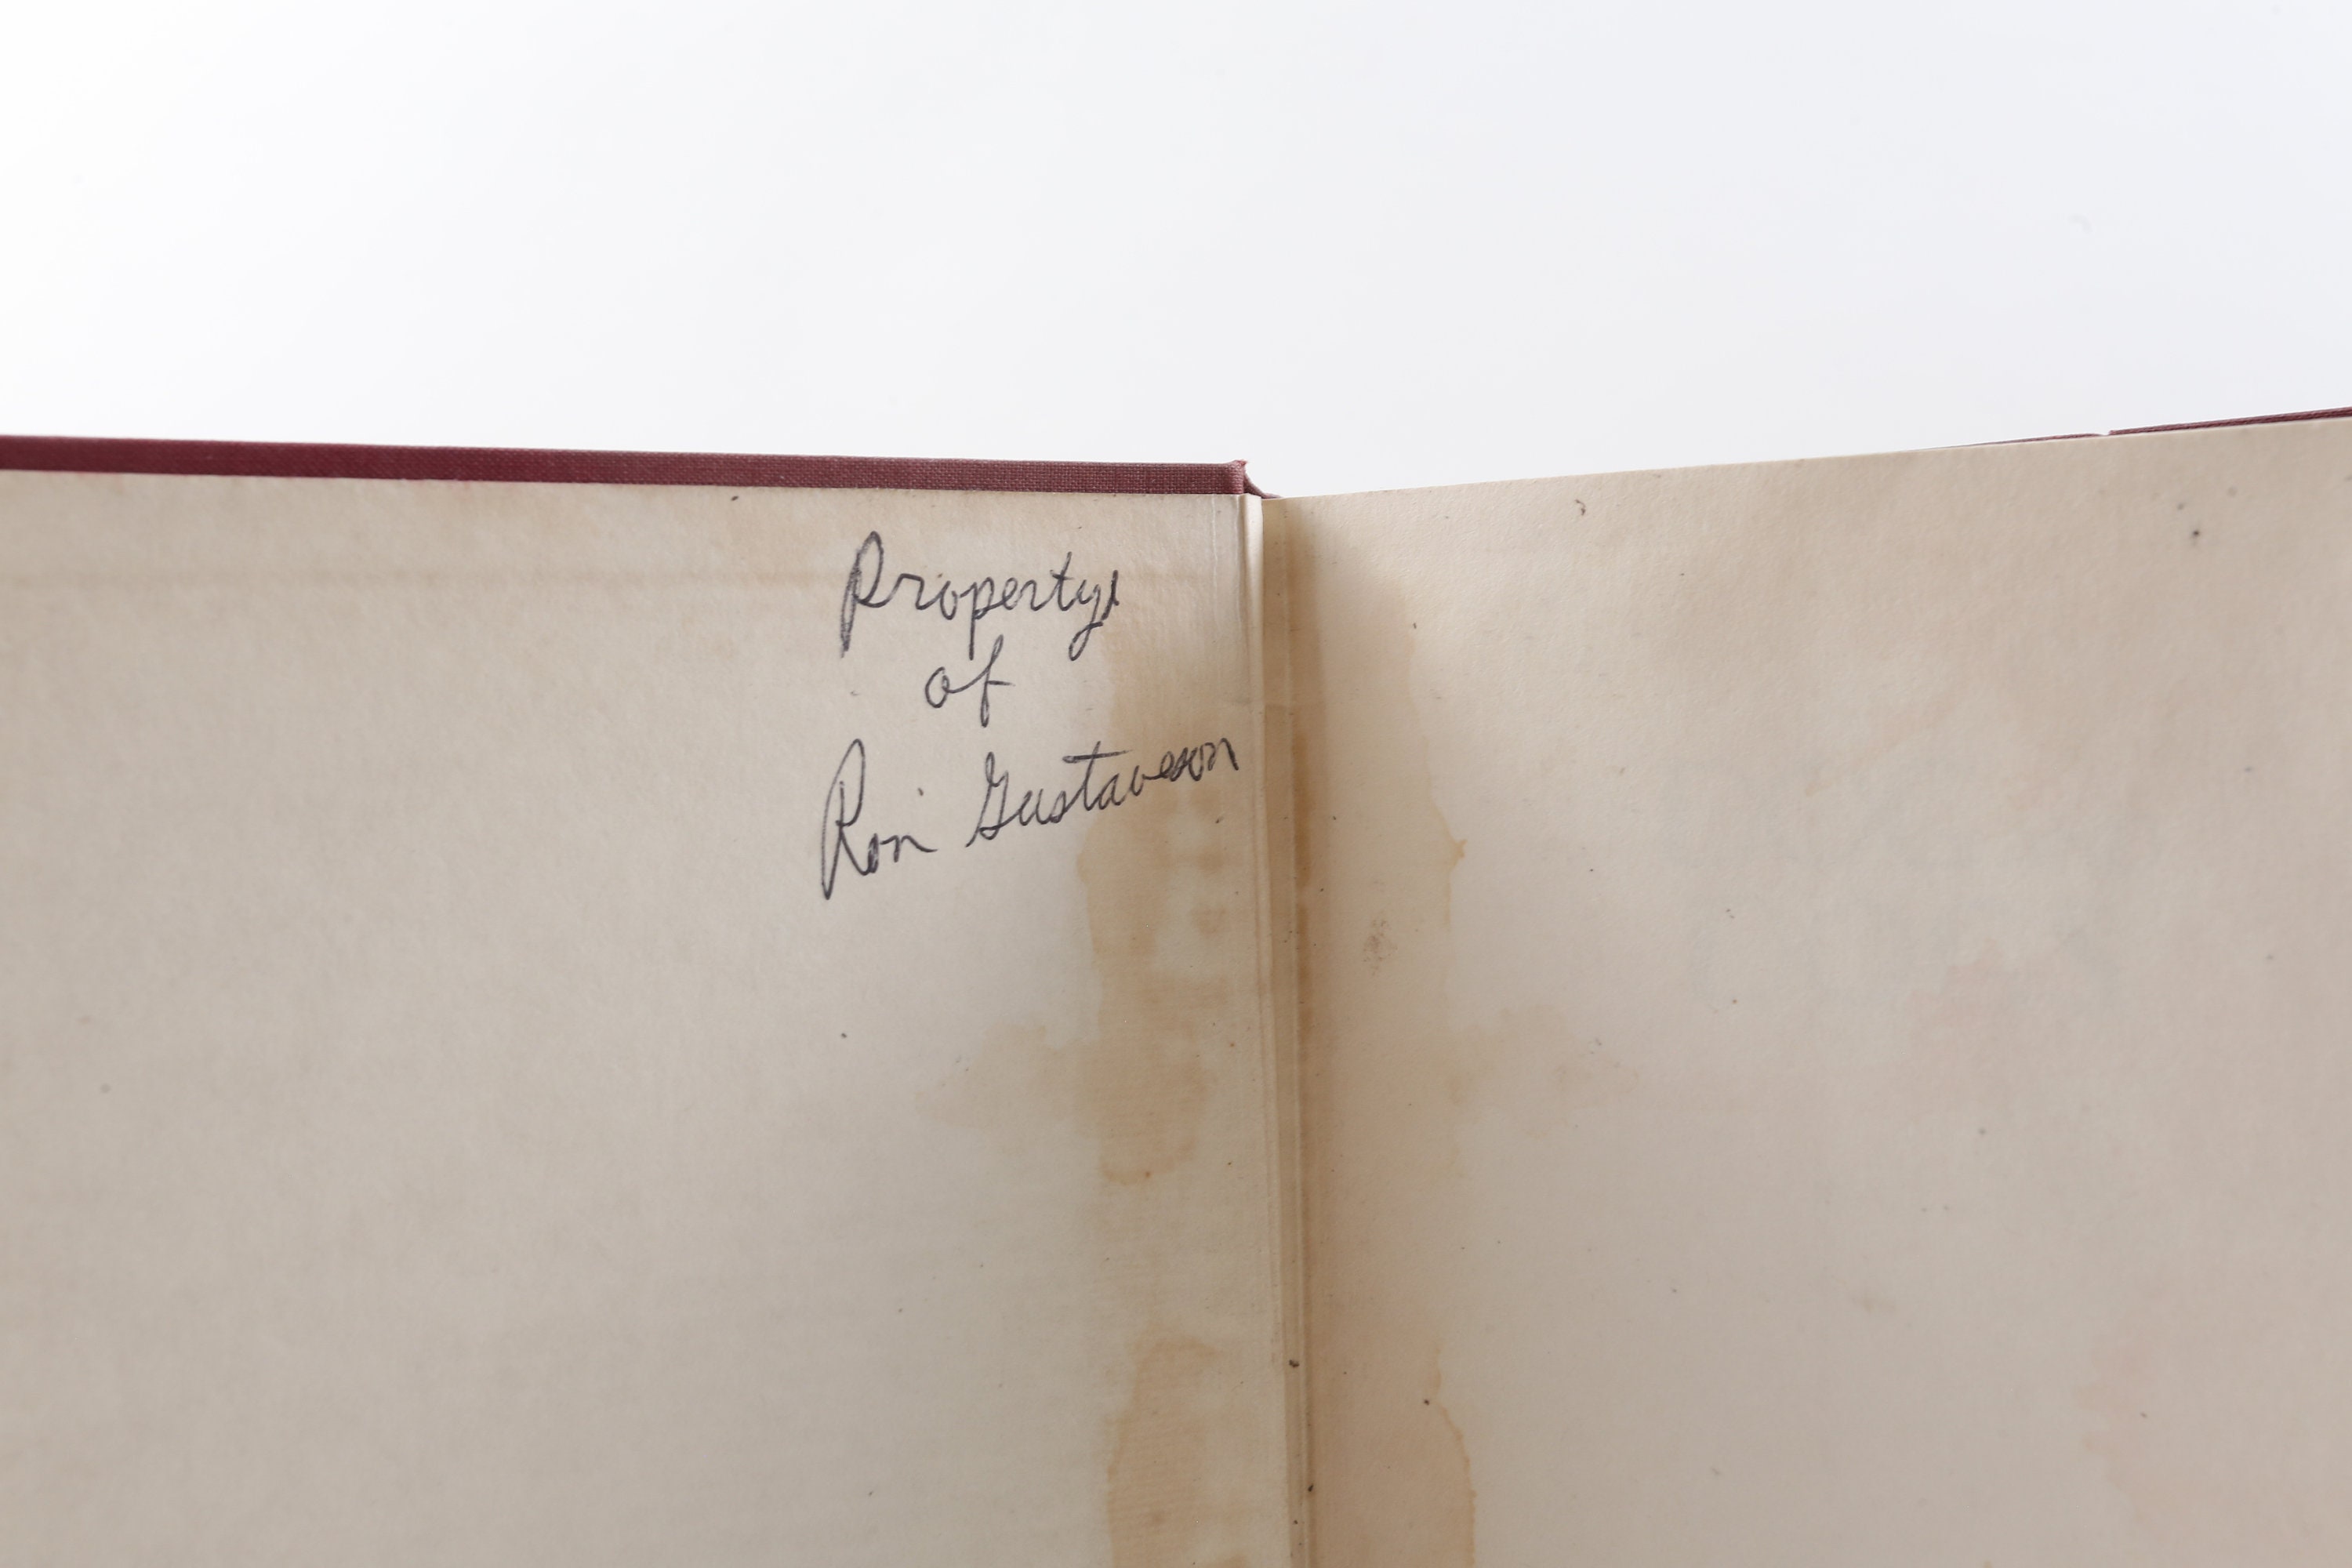 Property
of
Ron Gustaveson